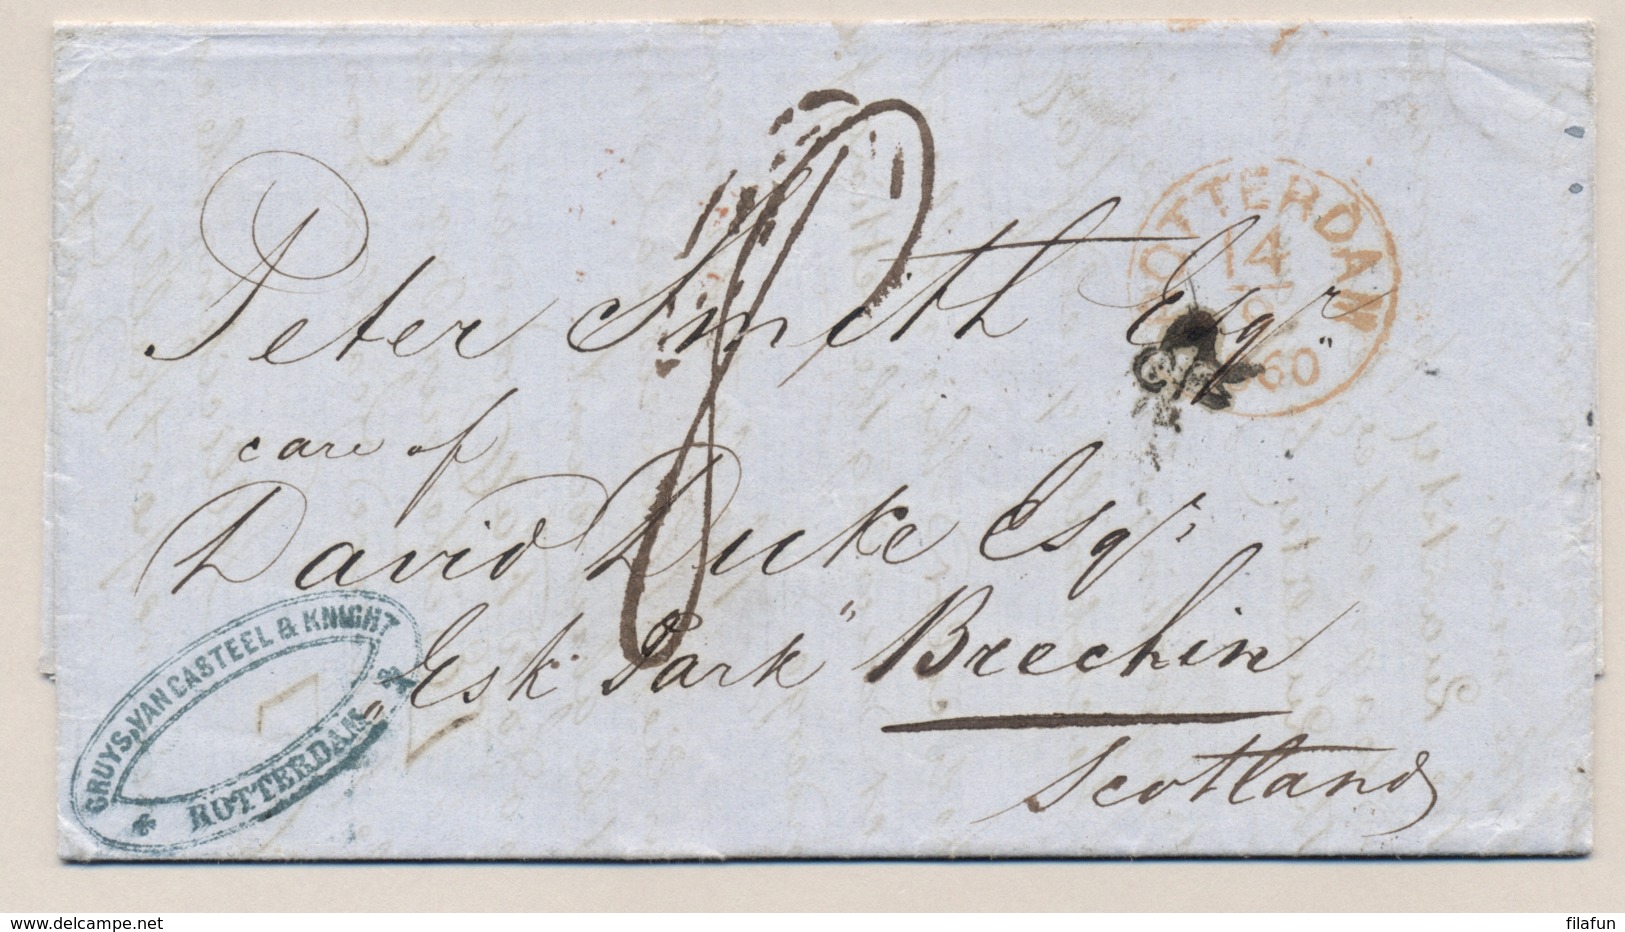 Peter Smith Esqr"
care of
David Duke Esqr
Esk Park" Brechin
Scotland
ROTTERDAM
14
1860
GRUYS, VAN CASTEEL & KNIGHT
* ROTTERDAM *
delcampe.net
filafun